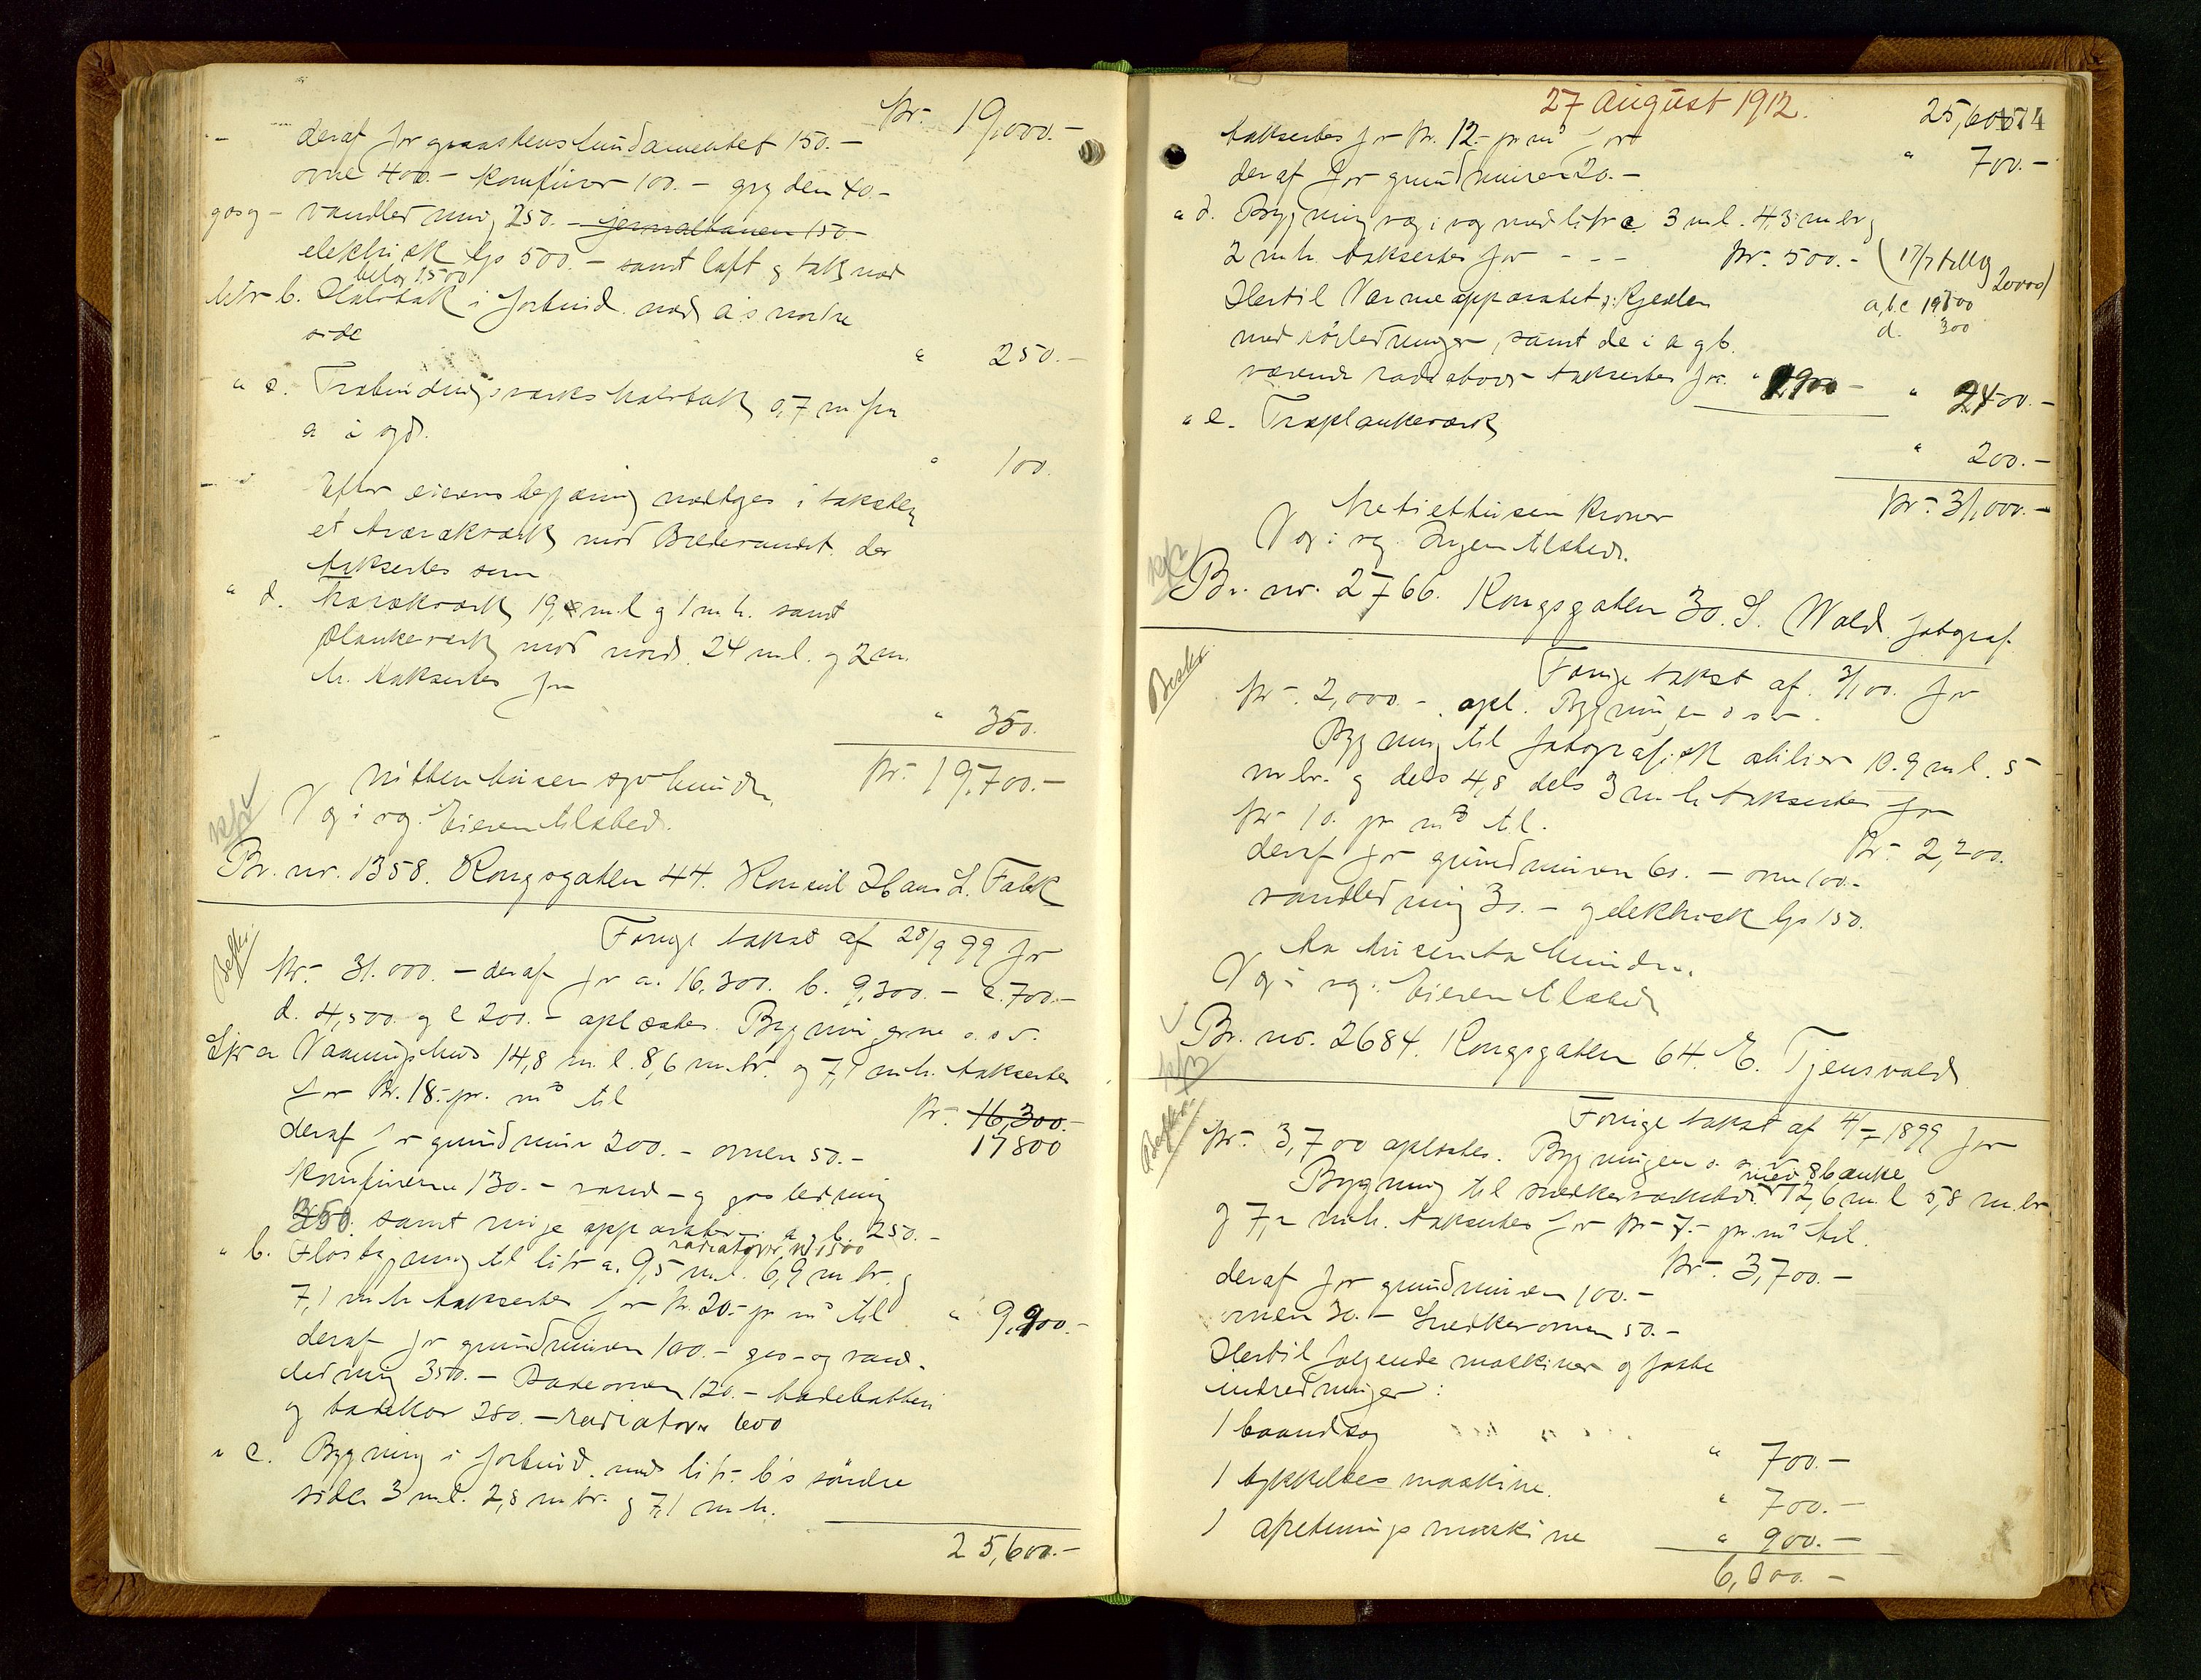 Kr. 19,000.-
deraf for graastensfundamentet 150.-
ovne 400.- komfurer 100.- gryden 40.-
gas og - vandledning 250.-
elektrisk lys 500.- samt loft og tak med
belæg 1500
Litr b. Halvtak i forbind. med a's nordre
side " 250.-
" c. Træbindingsværks halvtak 0,7 m fra
a i syd. " 100.
Efter eierens begjæring medtages i taksten
et stakværk mod Bredevandet der
takseres som
" d. stakværk 19, m.l. og 1 m.h. samt
Plankeværk mod nord 24 m.l. og 2 m.
h. takseres for
" 350.
Kr. 19,700.-
Nittentusen syv hundre
V og i rg. Eieren tilstede.
Br. nr. 1358. Kongsgaten 44. Konsul Hans L. Falck
Forrige takst af 28/9 99 for
Kr. 31.000.- deraf for a. 16,300. b. 9,300.- c. 700.-
d. 4,500 og e 200.- oplæstes. Bygningerne o.s.v.
Litr a Vaaningshus 14,8 m.l. 8,6 m.br. og 7,1 m.h. takseres
for Kr. 18.- pr. m² til Kr. 16,300.-
17800
deraf for grundmure 200.- ovnen 50.-
komfurerne 130.- vand- og gasledning
350. samt apparater i a og b. 250.-
radiatorer 1500
" b. Tilbygning til litr a. 9,5 m.l. 6,9 m.br. og
7,1 m.h. takseres for Kr. 20.- pr m² til " 9,900.-
deraf for grundmuren 100.- gas- og vand-
ledning 350.- Badeovnen 120.- badebatteri
og badekar 280.- radiatorer 600
" c. Bygning i forbind. med litr. b's søndre
side 3 m.l. 2,8 m.br. og 7,1 m.h.
25,600.-
27 August 1912.
25,600
574
takseres for Kr. 12.- pr m²
" 700.-
deraf for grundmuren 20.-
" d. Bygning og i rg med litr c 3 m.l. 4,3 m.br og
2 m.h. takseres for - - - Kr. 500.-
(17/7 tillæg 20000)
Hertil Varmeapparatet: Kjedlen
a,b,c 19700
d. 300
med rørledninger, samt de i a og b.
værende radiatorer takseres for " 1900- " 2400.-
" e. Træplankeværk
" 200.-
Kr. 31,000.-
Trettiettusen Kroner
V og i rg. Ingen tilstede.
Br. nr. 2766. Kongsgaten 30. S. Wold fotograf.
Beskr.
Forrige takst af 3/1 00. for
Kr. 2,000.- opl. Bygningen o s v.
Bygning til fotografisk atelier 10.9 m.l. 5
m.br. og dels 4,8 dels 3 m.h. takseres for
Kr 10. pr m² til.
Kr. 2,200.
deraf for grundmuren 60.- ovne 100.-
vandledning 30.- og elektrisk lys 150.
To tusen to hundre.
V og i rg. Eieren tilstede
Br. no. 2684. Kongsgaten 64. E. Tjensvold
Forrige takst af 4/7 1899 for
Kr. 3,700 oplæstes. Bygningen o. s. v.
med 8 bænke
Bygning til snedkerværksted 12,6 m.l. 5,8 m.br.
og 7,2 m.h. takseres for Kr 7.- pr. m² til.
Kr. 3,700.-
deraf for grundmuren 100.-
ovnen 30.- Snedkerovnen 50.-
Hertil følgende maskiner og faste
indredninger:
1 baandsag " 700.-
1 tykkelses maskine. " 700.-
1 afretnings maskine " 900.-
6,000.-